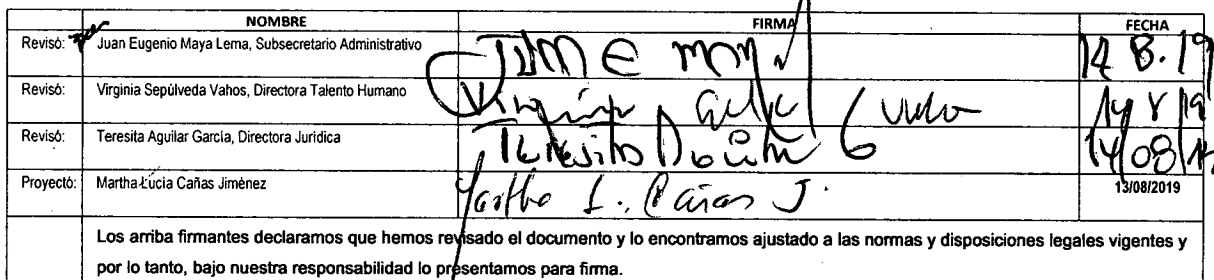 NOMBRE FIRMA FECHA
Revisó: Juan Eugenio Maya Lema, Subsecretario Administrativo 14 8.19
Revisó: Virginia Sepúlveda Vahos, Directora Talento Humano Virginia 14 8 19
Revisó: Teresita Aguilar García, Directora Jurídica Teresita Aguilar G 14/08/
Proyectó: Martha Lucía Cañas Jiménez Martha L. Cañas J. 13/08/2019
Los arriba firmantes declaramos que hemos revisado el documento y lo encontramos ajustado a las normas y disposiciones legales vigentes y
por lo tanto, bajo nuestra responsabilidad lo presentamos para firma.